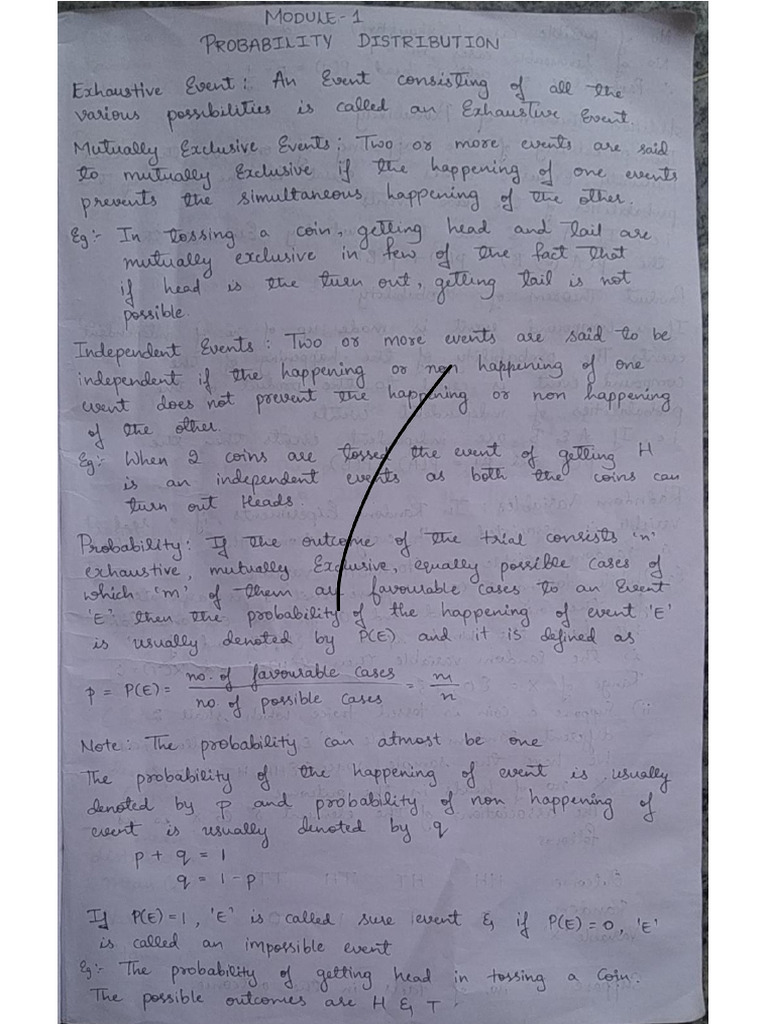 MODULE-1
PROBABILITY DISTRIBUTION
Exhaustive Event: An Event consisting of all the
various possibilities is called an Exhaustive Event.
Mutually Exclusive Events: Two or more events are said
to mutually Exclusive if the happening of one events
prevents the simultaneous happening of the other.
Eg:- In tossing a coin, getting head and tail are
mutually exclusive in few of the fact that
if head is the turn out, getting tail is not
possible.
Independent Events: Two or more events are said to be
independent if the happening or non happening of one
event does not prevent the happening or non happening
of the other.
Eg:- When 2 coins are tossed the event of getting H
is an independent events as both the coins can
turn out Heads.
Probability: If the outcome of the trial consists 'n'
exhaustive, mutually Exclusive, equally possible cases of
which 'm' of them are favourable cases to an Event
'E' then the probability of the happening of event 'E'
is usually denoted by P(E) and it is defined as
p = P(E) = no. of favourable cases / no. of possible cases = m/n
Note: The probability can atmost be one
The probability of the happening of event is usually
denoted by p and probability of non happening of
event is usually denoted by q
p + q = 1
q = 1 - p
If P(E)=1, 'E' is called sure event & if P(E)=0, 'E'
is called an impossible event
Eg:- The probability of getting head in tossing a Coin.
The possible outcomes are H & T